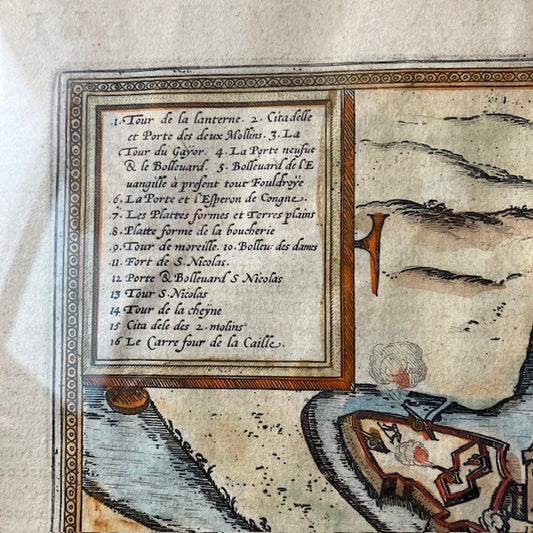 1. Tour de la lanterne. 2. Citadelle
et Porte des deux Mollins. 3. La
Tour du Gayor. 4. La Porte neufue
& le Bollevard. 5. Bollevard de l'E
uangille à present tout Fouldroÿe
6. La Porte et l'Esperon de Congne.
7. Les Plattes formes et Terres plains
8. Platte forme de la boucherie
9. Tour de moreille. 10. Bolleu: des dames
11. Fort de S. Nicolas.
12 Porte & Bollevard S Nicolas
13 Tour S. Nicolas
14 Tour de la cheÿne
15 Cita dele des 2. molins
16 Le Carre four de la Caille.